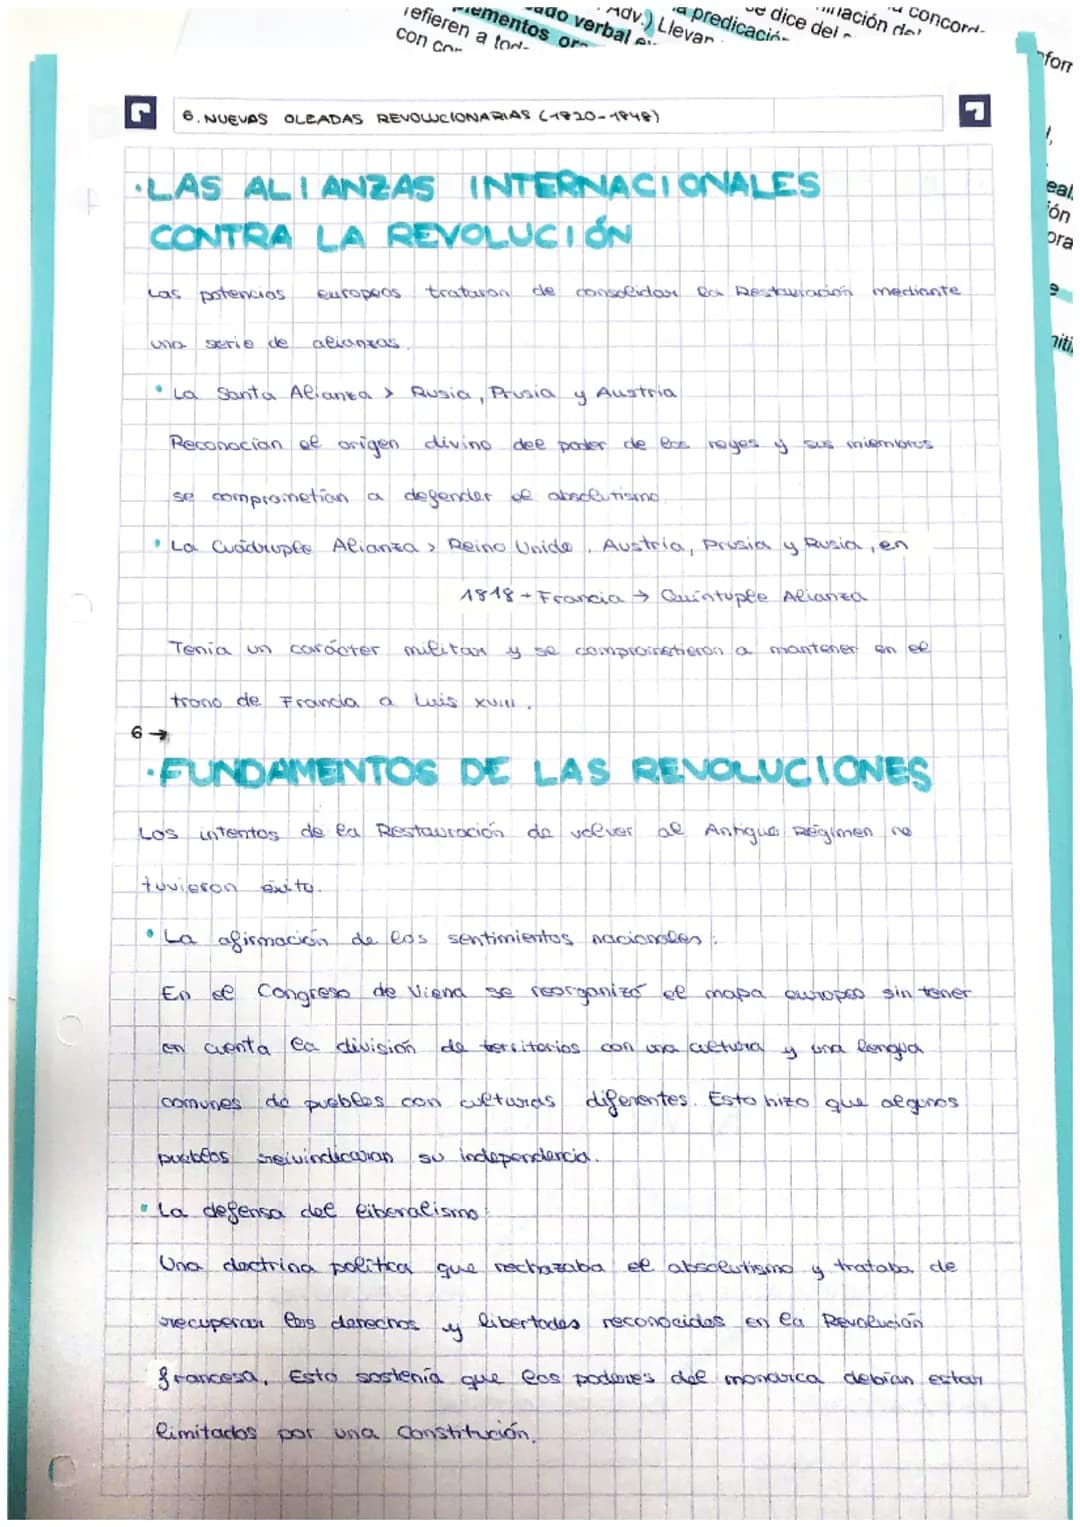 refieren a tod
con con
elementos
verbal
Adv.) Llevan
la predicación
se dice del
concord-
6. NUEVAS OLEADAS REVOLUCIONARIAS (1820-1848)
· LAS ALIANZAS INTERNACIONALES
CONTRA LA REVOLUCIÓN
Las potencias europeas trataron de consolidar la Restauración mediante
una serie de alianzas.
• La Santa Alianza > Rusia, Prusia y Austria
Reconocían el origen divino del poder de los reyes y sus miembros
se comprometían a defender el absolutismo.
• La Cuádruple Alianza > Reino Unido, Austria, Prusia y Rusia, en
1818 + Francia → Quíntuple Alianza
Tenía un carácter militar y se comprometieron a mantener en el
trono de Francia a Luis XVIII.
6 →
· FUNDAMENTOS DE LAS REVOLUCIONES
Los intentos de la Restauración de volver al Antiguo Régimen no
tuvieron éxito.
• La afirmación de los sentimientos nacionales:
En el Congreso de Viena se reorganizó el mapa europeo sin tener
en cuenta la división de territorios con una cultura y una lengua
comunes de pueblos con culturas diferentes. Esto hizo que algunos
pueblos reivindicaran su independencia.
• La defensa del liberalismo:
Una doctrina política que rechazaba el absolutismo y trataba de
recuperar los derechos y libertades reconocidos en la Revolución
francesa. Esto sostenía que los poderes del monarca debían estar
limitados por una Constitución.